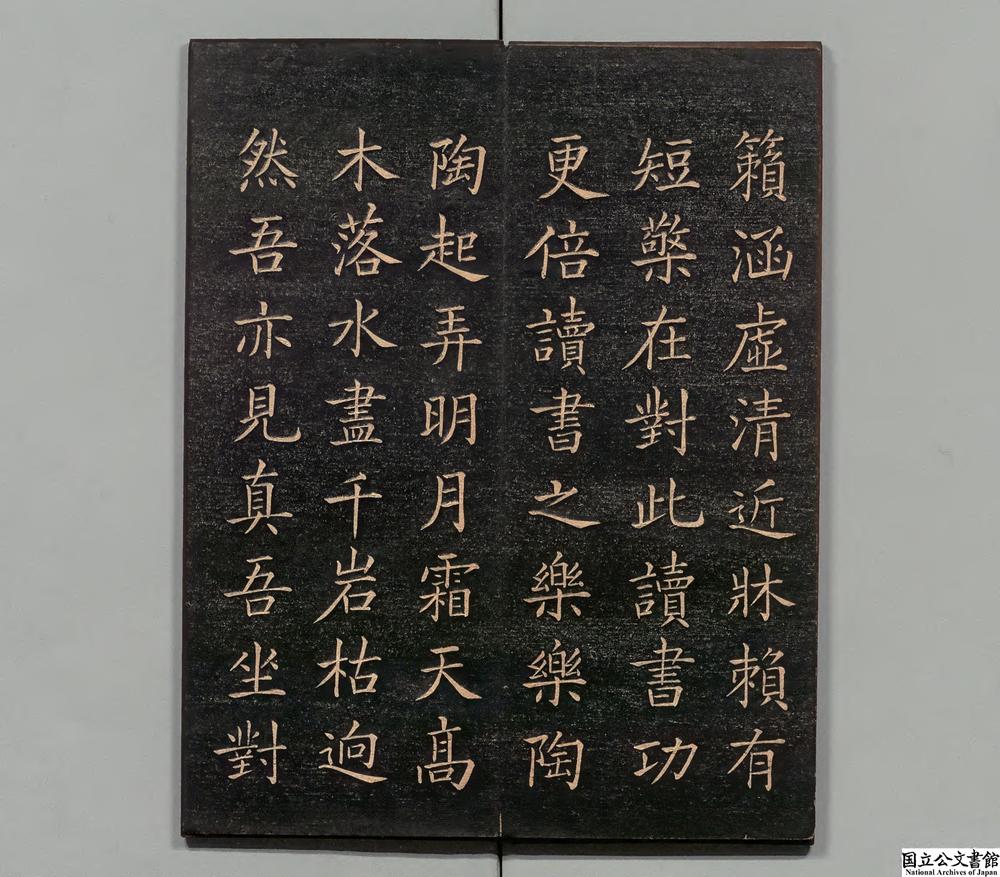 籟涵虛清近牀賴有
短檠在對此讀書功
更倍讀書之樂樂陶
陶起弄明月霜天髙
木落水盡千岩枯逈
然吾亦見真吾坐對
国立公文書館
National Archives of Japan